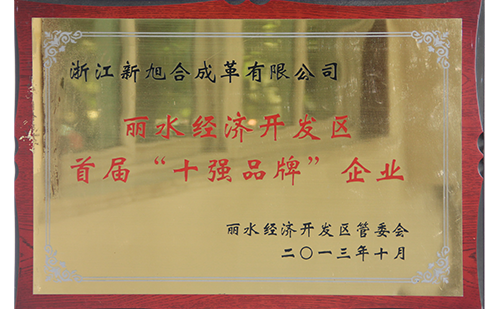 浙江新旭合成革有限公司
丽水经济开发区
首届“十强品牌”企业
丽水经济开发区管委会
二〇一三年十月